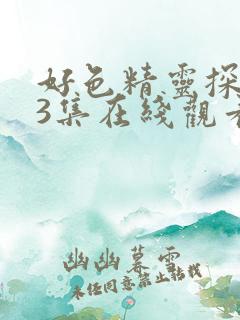 好色精靈探
3集在綫觀看
幽幽暮雲
未经同意禁止轉載